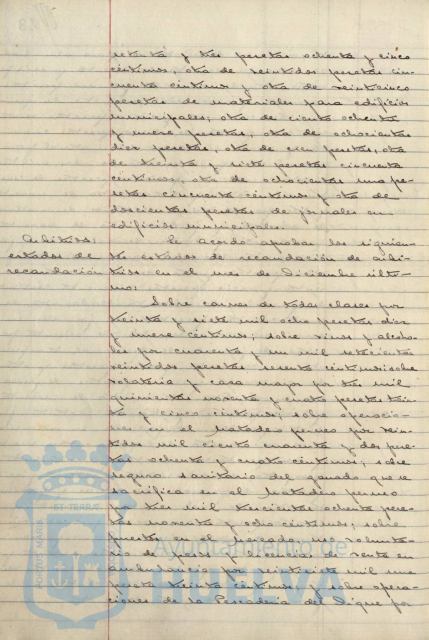 setenta y tres pesetas ochenta y cinco
céntimos, otra de veintidos pesetas cin-
cuenta céntimos y otra de veinticinco
pesetas de materiales para edificios
municipales; otra de ciento ochenta
y nueve pesetas, otra de ochocientas
diez pesetas, otra de cien pesetas, otra
de treinta y siete pesetas cincuenta
céntimos, otra de ochocientas una pe-
setas cincuenta céntimos y otra de
doscientas pesetas de jornales en
edificios municipales.
Arbitrios:
estados de
recaudación
Se acordo aprobar los siguien-
tes estados de recaudación de arbi-
trios en el mes de Diciembre ulti-
mo:
Sobre carnes de todas clases por
treinta y siete mil ocho pesetas diez
y nueve céntimos; sobre vinos y alcoho-
les por cuarenta y un mil setecientas
veintidos pesetas sesenta céntimos; sobre
volateria y caza mayor por tres mil
quinientas noventa y cuatro pesetas trein-
ta y cinco céntimos; sobre operacio-
nes en el Matadero por vein-
tidos mil ciento cuarenta y dos pese-
tas ochenta y cuatro céntimos; sobre
seguro sanitario del ganado que se
sacrifica en el Matadero
por tres mil trescientas ochenta pese-
tas noventa y ocho céntimos; sobre
puestos en el Mercado, uso volunta-
rio de pesas y licencias de venta en
ambulancia por veintisiete mil una
peseta treinta céntimos; y sobre opera-
ciones de la Pescaderia del Dique por
PORTUS MARIS
ET TERRÆ
Ayuntamiento de
HUELVA